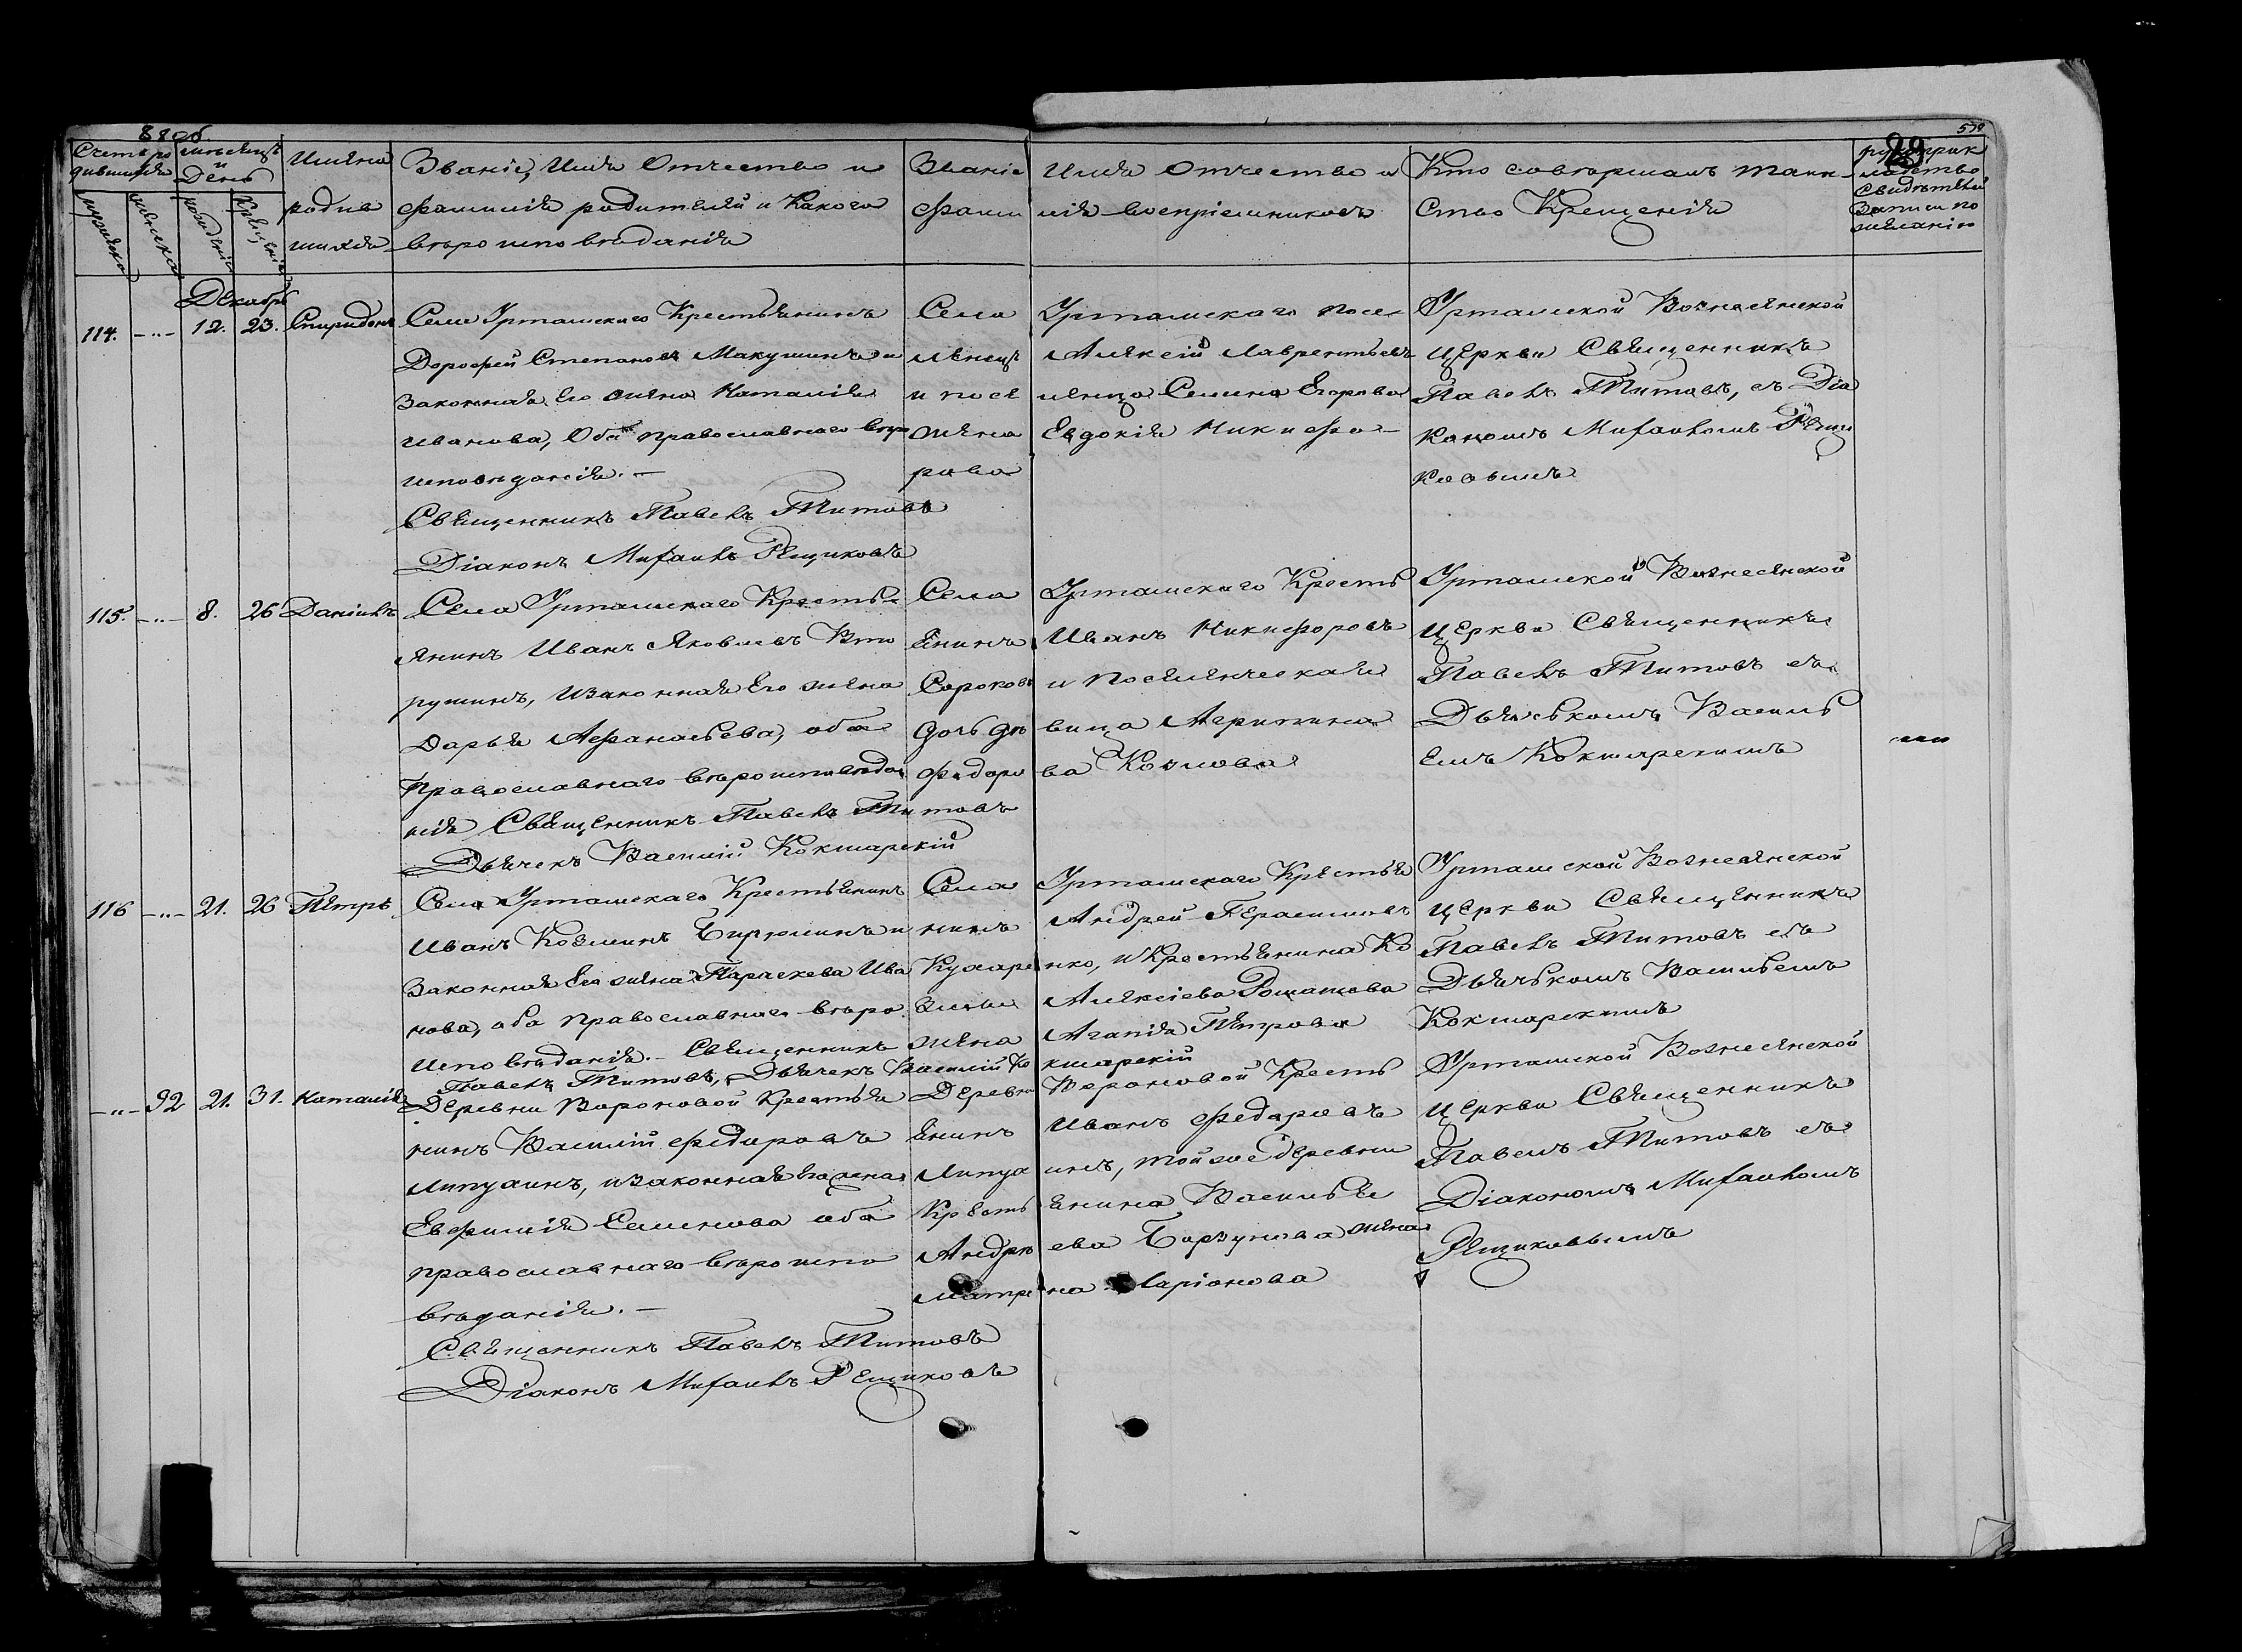 88об.
579
29
Счетъ ро
дившихся
мужеска
женска
Мѣсяцъ
и
День
рожденія
Крещенія
Имена
родив
шихся
Званіе, Имя Отчество и
фамилія родителей и Какого
вѣроисповѣданія
Званіе Имя Отчество и
фами лія воспріемниковъ
Кто совершалъ таин-
ство Крещенія
рукоприк
ладство
Свидѣтелей
Записи по
желанію
Декабрь
114. -"- 12. 23. Спиридонъ
Села Урташскаго Крестьянинъ
Дорофей Степановъ Макушинъ и
Законная Его жена Наталія
Иванова, Оба православнаго вѣро
исповѣданія. —
Священникъ Павелъ Титовъ
Діаконъ Михаилъ Рещиковъ
Села Урташскаго посе
ленецъ Алексій Лаврентьевъ
и посе ленца Семена Егорова
жена Евдокія Никифо-
рова
Урташской Вознесенской
Церкви Священникъ
Павелъ Титовъ, съ Діа
кономъ Михаиломъ Рещи
ковымъ
115. -"- 8. 26 Даніилъ
Села Урташскаго Кресть
янинъ Иванъ Яковлевъ Вто
рушинъ, и законная Его жена
Дарья Афанасьева, оба
Православнаго вѣроисповѣда
нія Священникъ Павелъ Титовъ
Дьячекъ Василій Кокшарскій
Села Урташскаго Кресть
янинъ Иванъ Никифоровъ
Сороковъ и поселенческая
дочь дѣ вица Агрипина
Федоро ва Козлова
Урташской Вознесенской
Церкви Священникъ
Павелъ Титовъ съ
Дьячькомъ Василь
емъ Кокшарскимъ
116 -"- 21. 26 Петръ
Села Урташскаго Крестьянинъ
Иванъ Козминъ Бирюлинъ и
Законная Его жена Параскева Ива
нова, оба православнаго вѣро
исповѣданія. — Священникъ
Павелъ Титовъ, Дьячекъ Василій Ко
кшарскій
Села Урташскаго Крестья
нинъ Андрей Герасимовъ
Кухаре нко, и Крестьянина Ко
Алексіева Романова
жена Агапія Петрова
Урташской Вознесенской
Церкви Священникъ
Павелъ Титовъ съ
Дьячькомъ Васильемъ
Кокшарскимъ
-"- 92 21. 31. Наталія
Деревни Вороновой Крестья
нинъ Василій Федоровъ
Липухинъ, и законная Его жена
Евфимія Семенова оба
православнаго вѣроиспо
вѣданія. —
Священникъ Павелъ Титовъ
Діаконъ Михаилъ Рещиковъ
Деревни Вороновой Кресть
янинъ Иванъ Федоровъ
Липух инъ, той же деревни
Кресть янина Василья
Андре ева Борзунова жена
Матре на Ларіонова
Урташской Вознесенской
Церкви Священникъ
Павелъ Титовъ съ
Діакономъ Михаиломъ
Рещиковымъ